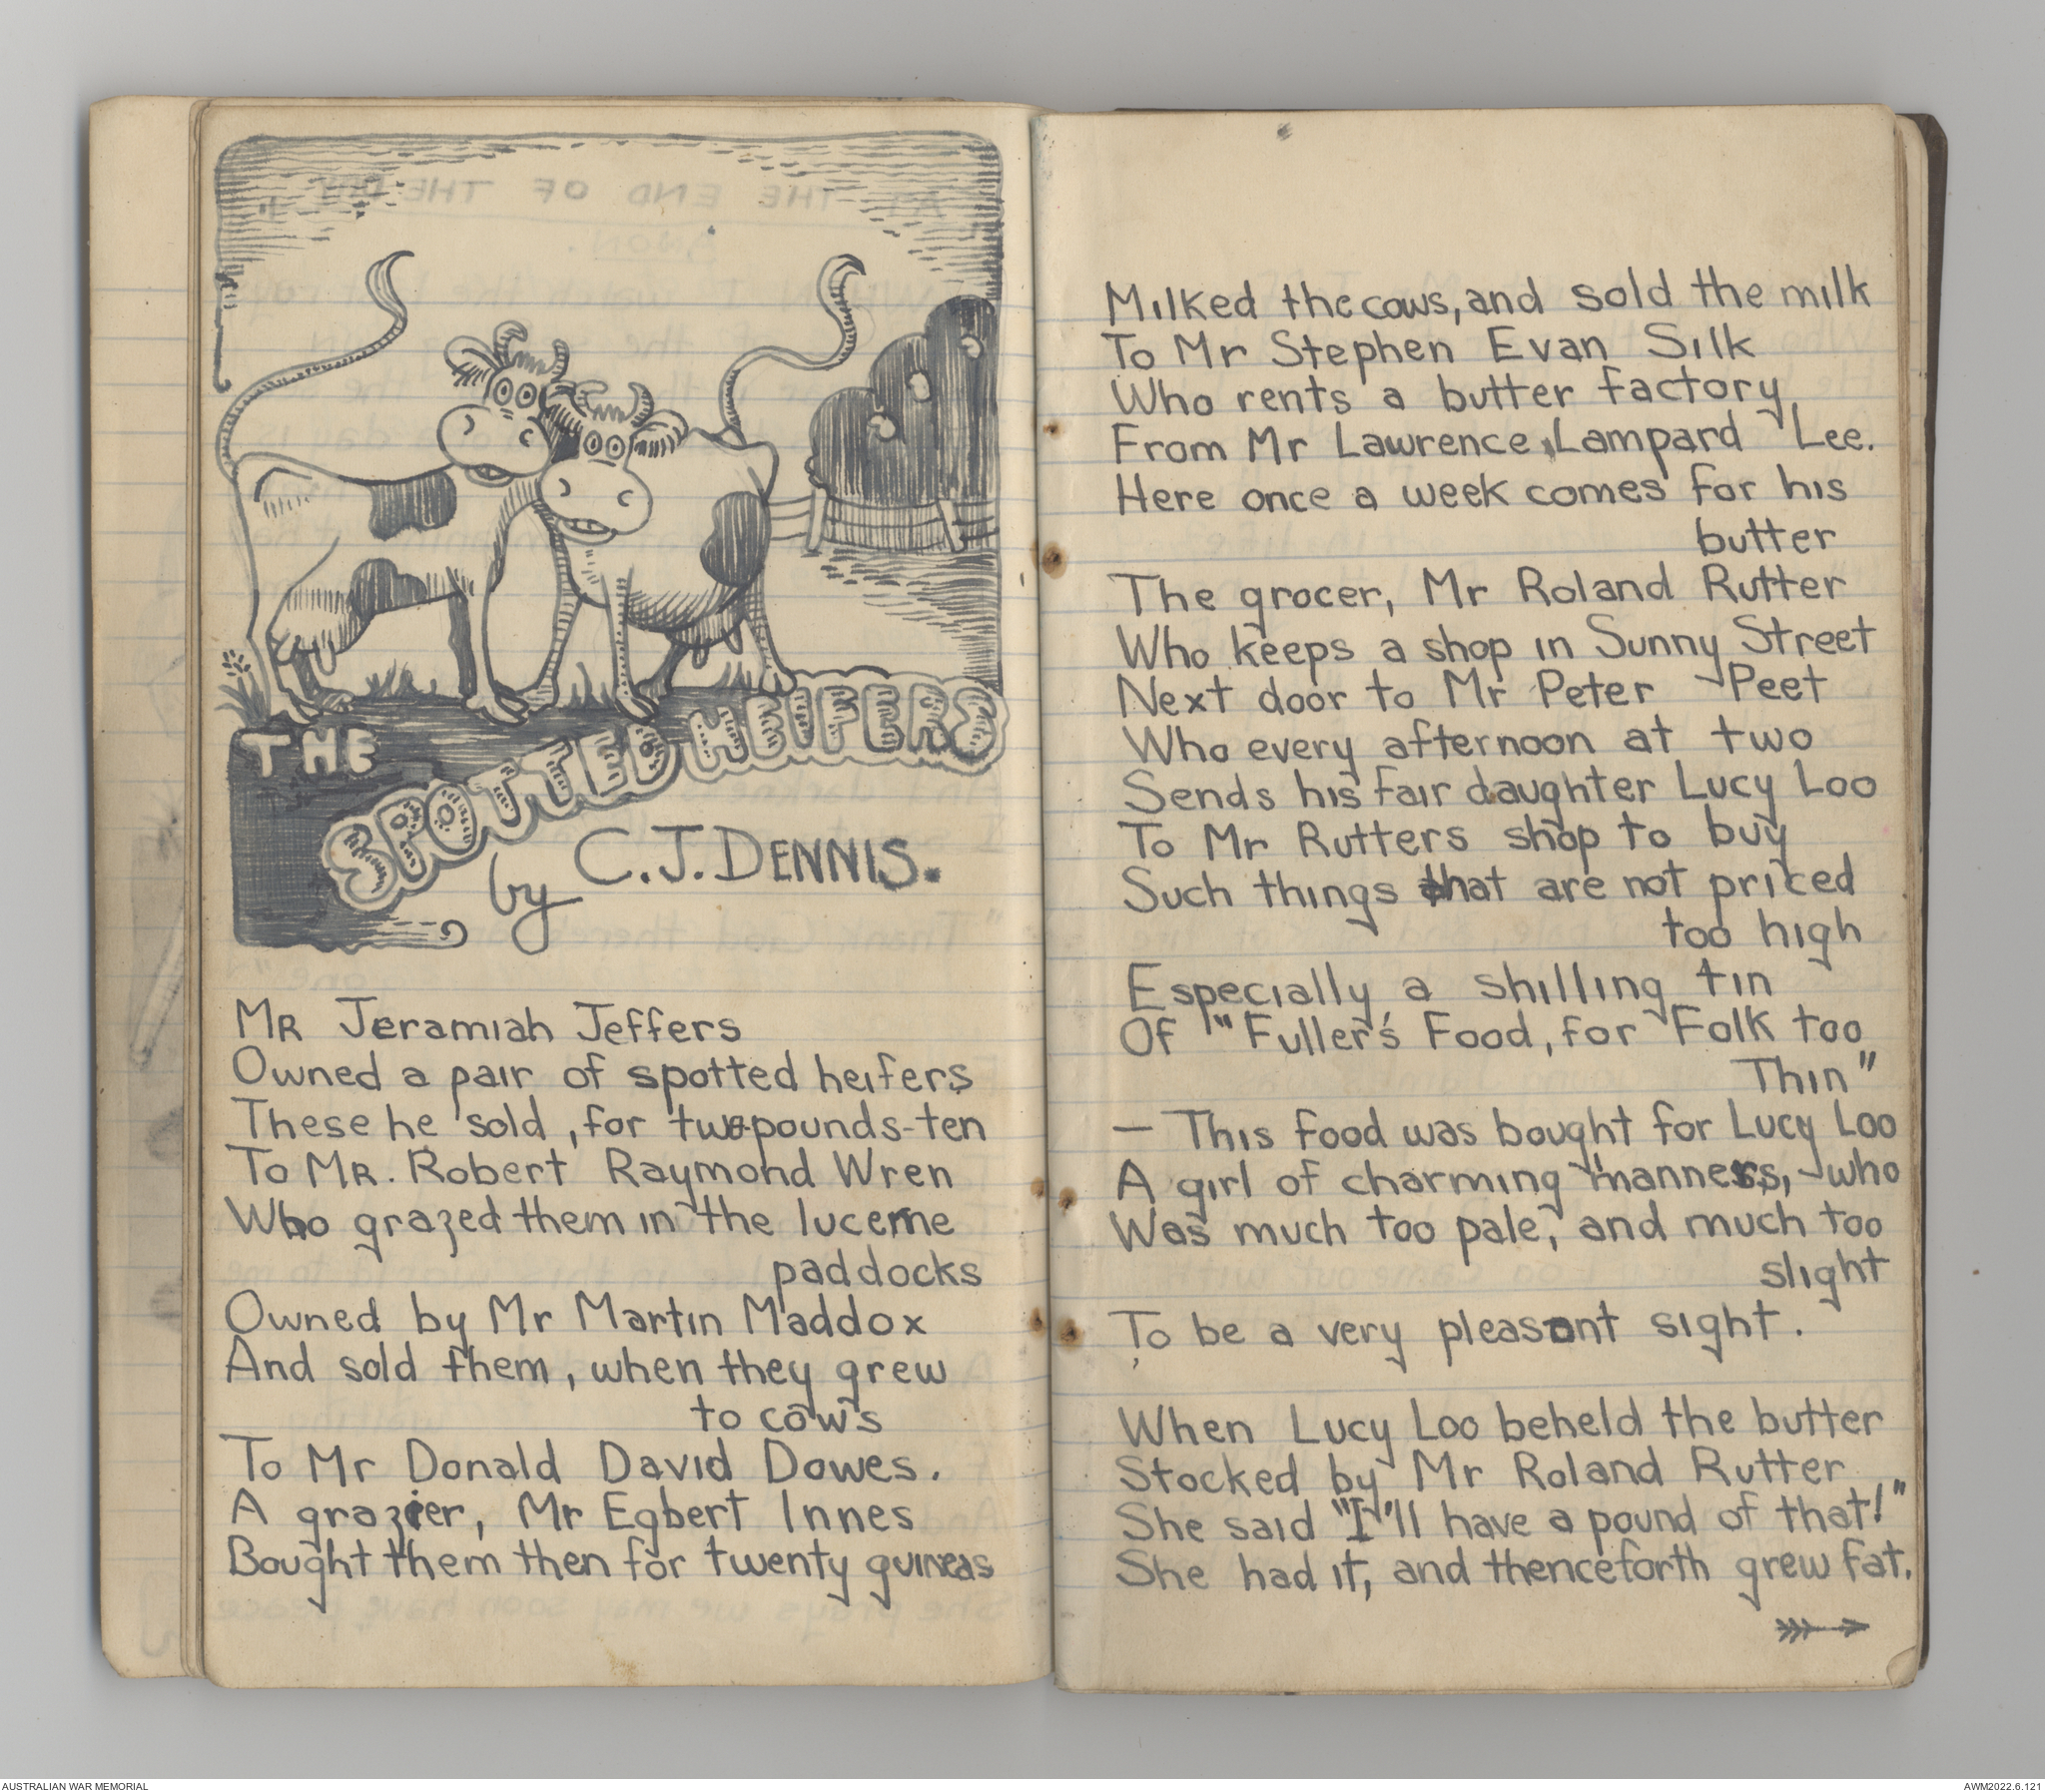 THE
SPOTTED HEIFERS
by C.J. DENNIS.
MR Jeramiah Jeffers
Owned a pair of spotted heifers
These he sold, for two-pounds-ten
To MR. Robert Raymond Wren
Who grazed them in the lucerne
paddocks
Owned by Mr Martin Maddox
And sold them, when they grew
to cows
To Mr Donald David Dowes.
A grazier, Mr Egbert Innes
Bought them then for twenty guineas
Milked the cows, and sold the milk
To Mr Stephen Evan Silk
Who rents a butter factory
From Mr Lawrence, Lampard Lee.
Here once a week comes for his
butter
The grocer, Mr Roland Rutter
Who keeps a shop in Sunny Street
Next door to Mr Peter Peet
Who every afternoon at two
Sends his fair daughter Lucy Loo
To Mr Rutters shop to buy
Such things that are not priced
too high
Especially a shilling tin
Of "Fuller's Food, for Folk too
Thin"
— This food was bought for Lucy Loo
A girl of charming manners, who
Was much too pale, and much too
slight
To be a very pleasant sight.
When Lucy Loo beheld the butter
Stocked by Mr Roland Rutter
She said "I'll have a pound of that!"
She had it, and thenceforth grew fat.
AUSTRALIAN WAR MEMORIAL
AWM2022.6.121